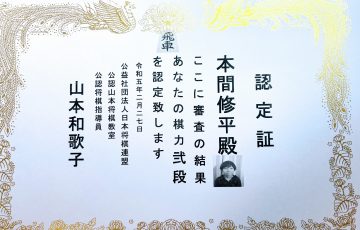 飛車
認定証
本間修平殿
ここに審査の結果
あなたの棋力弐段
を認定致します
令和五年二月二十七日
公益社団法人日本将棋連盟
公認山本将棋教室
公認将棋指導員
山本和歌子